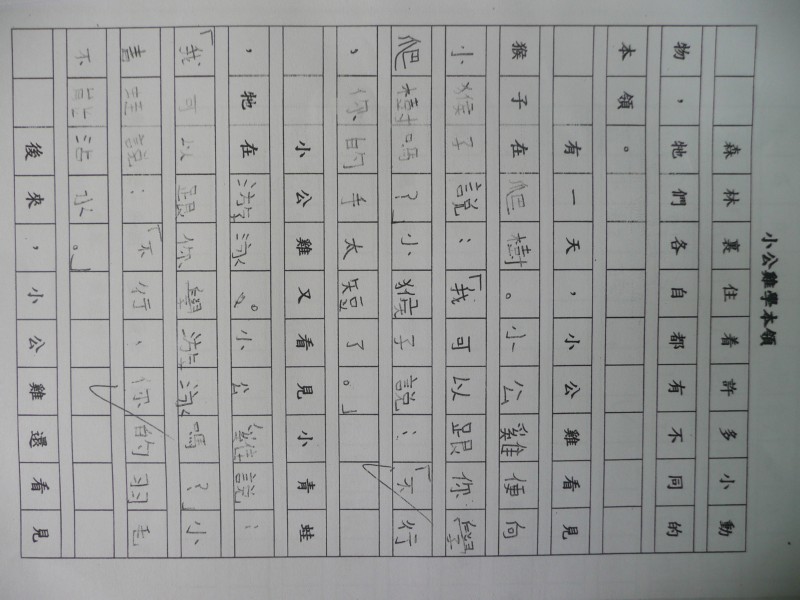 小公雞學本領
森林裏住着許多小動
物，牠們各自都有不同的
本領。
有一天，小公雞看見
猴子在爬樹。小公雞便向
小猴子說：「我可以跟你學
爬樹嗎？」小猴子說：「不行
，你的手太短了。」
小公雞又看見小青蛙
，牠在游泳。小公雞說：
「我可以跟你學游泳嗎？」小
青蛙說：「不行，你的羽毛
不能沾水。」
後來，小公雞還看見